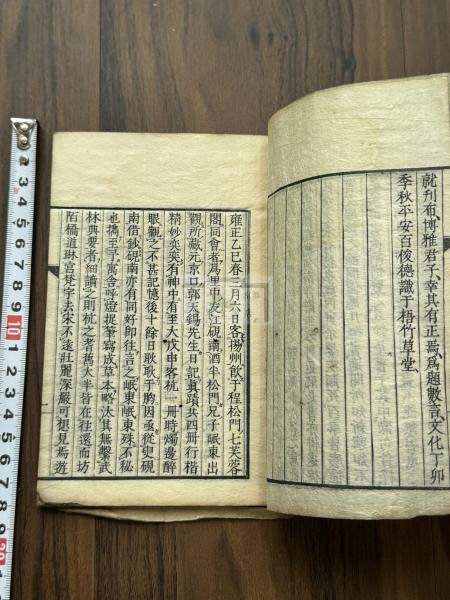 就刊布、博雅君子、幸其有正焉、爲題數言、文化丁卯
季秋平安百俊德識于梧竹草堂、
雍正乙巳春三月六日客揚州飲于程松門七芙蓉
閣同會者爲里中友江硯南酒半松門兄子岷東出
觀所藏元京口郭天錫先生日記眞蹟共四冊行楷
精妙奕奕有神中有至大戊申客杭一冊時燭邊醉
眼觀之不甚記憶後十餘日耿耿于胸因亟從叟硯
南借鈔硯南亦有同好卽往言之岷東岷東殊不秘
也攜至予寓舍呼燈提筆寫成草本略汰其無繫武
林典要者細讀之則杭之耆舊大半皆在往還而坊
陌橋道琳宮梵宇去宋不遠壯麗深嚴可想見焉遊
10
20